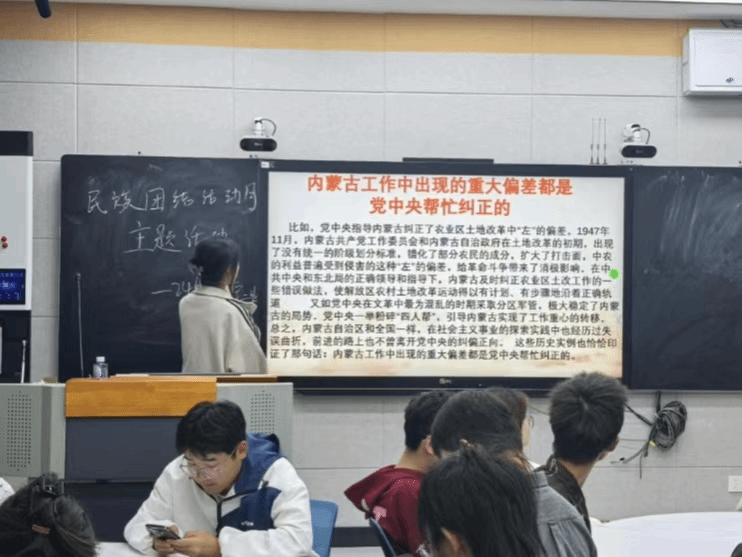 民族团结活动月
主题活动
内蒙古工作中出现的重大偏差都是
党中央帮忙纠正的
比如，党中央指导内蒙古纠正了农业区土地改革中“左”的偏差，1947年
11月，内蒙古共产党工作委员会和内蒙古自治政府在土地改革的初期，出现
了没有统一的阶级划分标准，错化了部分农民的成分，扩大了打击面，中农
的利益普遍受到侵害的这种“左”的偏差，给革命斗争带来了消极影响，在中
共中央和东北局的正确领导和指导下，内蒙古及时纠正农业区土改工作的一
些错误做法，使解放区农村土地改革运动得以有计划、有步骤地沿着正确轨
道
又如党中央在文革中最为混乱的时期采取分区军管，极大稳定了内蒙古
的局势，党中央一举粉碎“四人帮”，引导内蒙古实现了工作重心的转移。
总之，内蒙古自治区和全国一样，在社会主义事业的探索实践中也经历过失
误曲折，前进的路上也不曾离开党中央的纠偏正向。 这些历史实例也恰恰印
证了那句话：内蒙古工作中出现的重大偏差都是党中央帮忙纠正的。